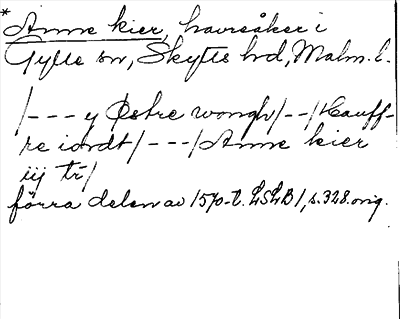 * Anne kier, havreåker i
Gylle sn, Skytts hd, Malm. l.
/---y Østre wongh/--/Hauff-
re iordt/---/Anne kier
iij tr/
förra delen av 1570-t. LSLB1, s. 328. orig.